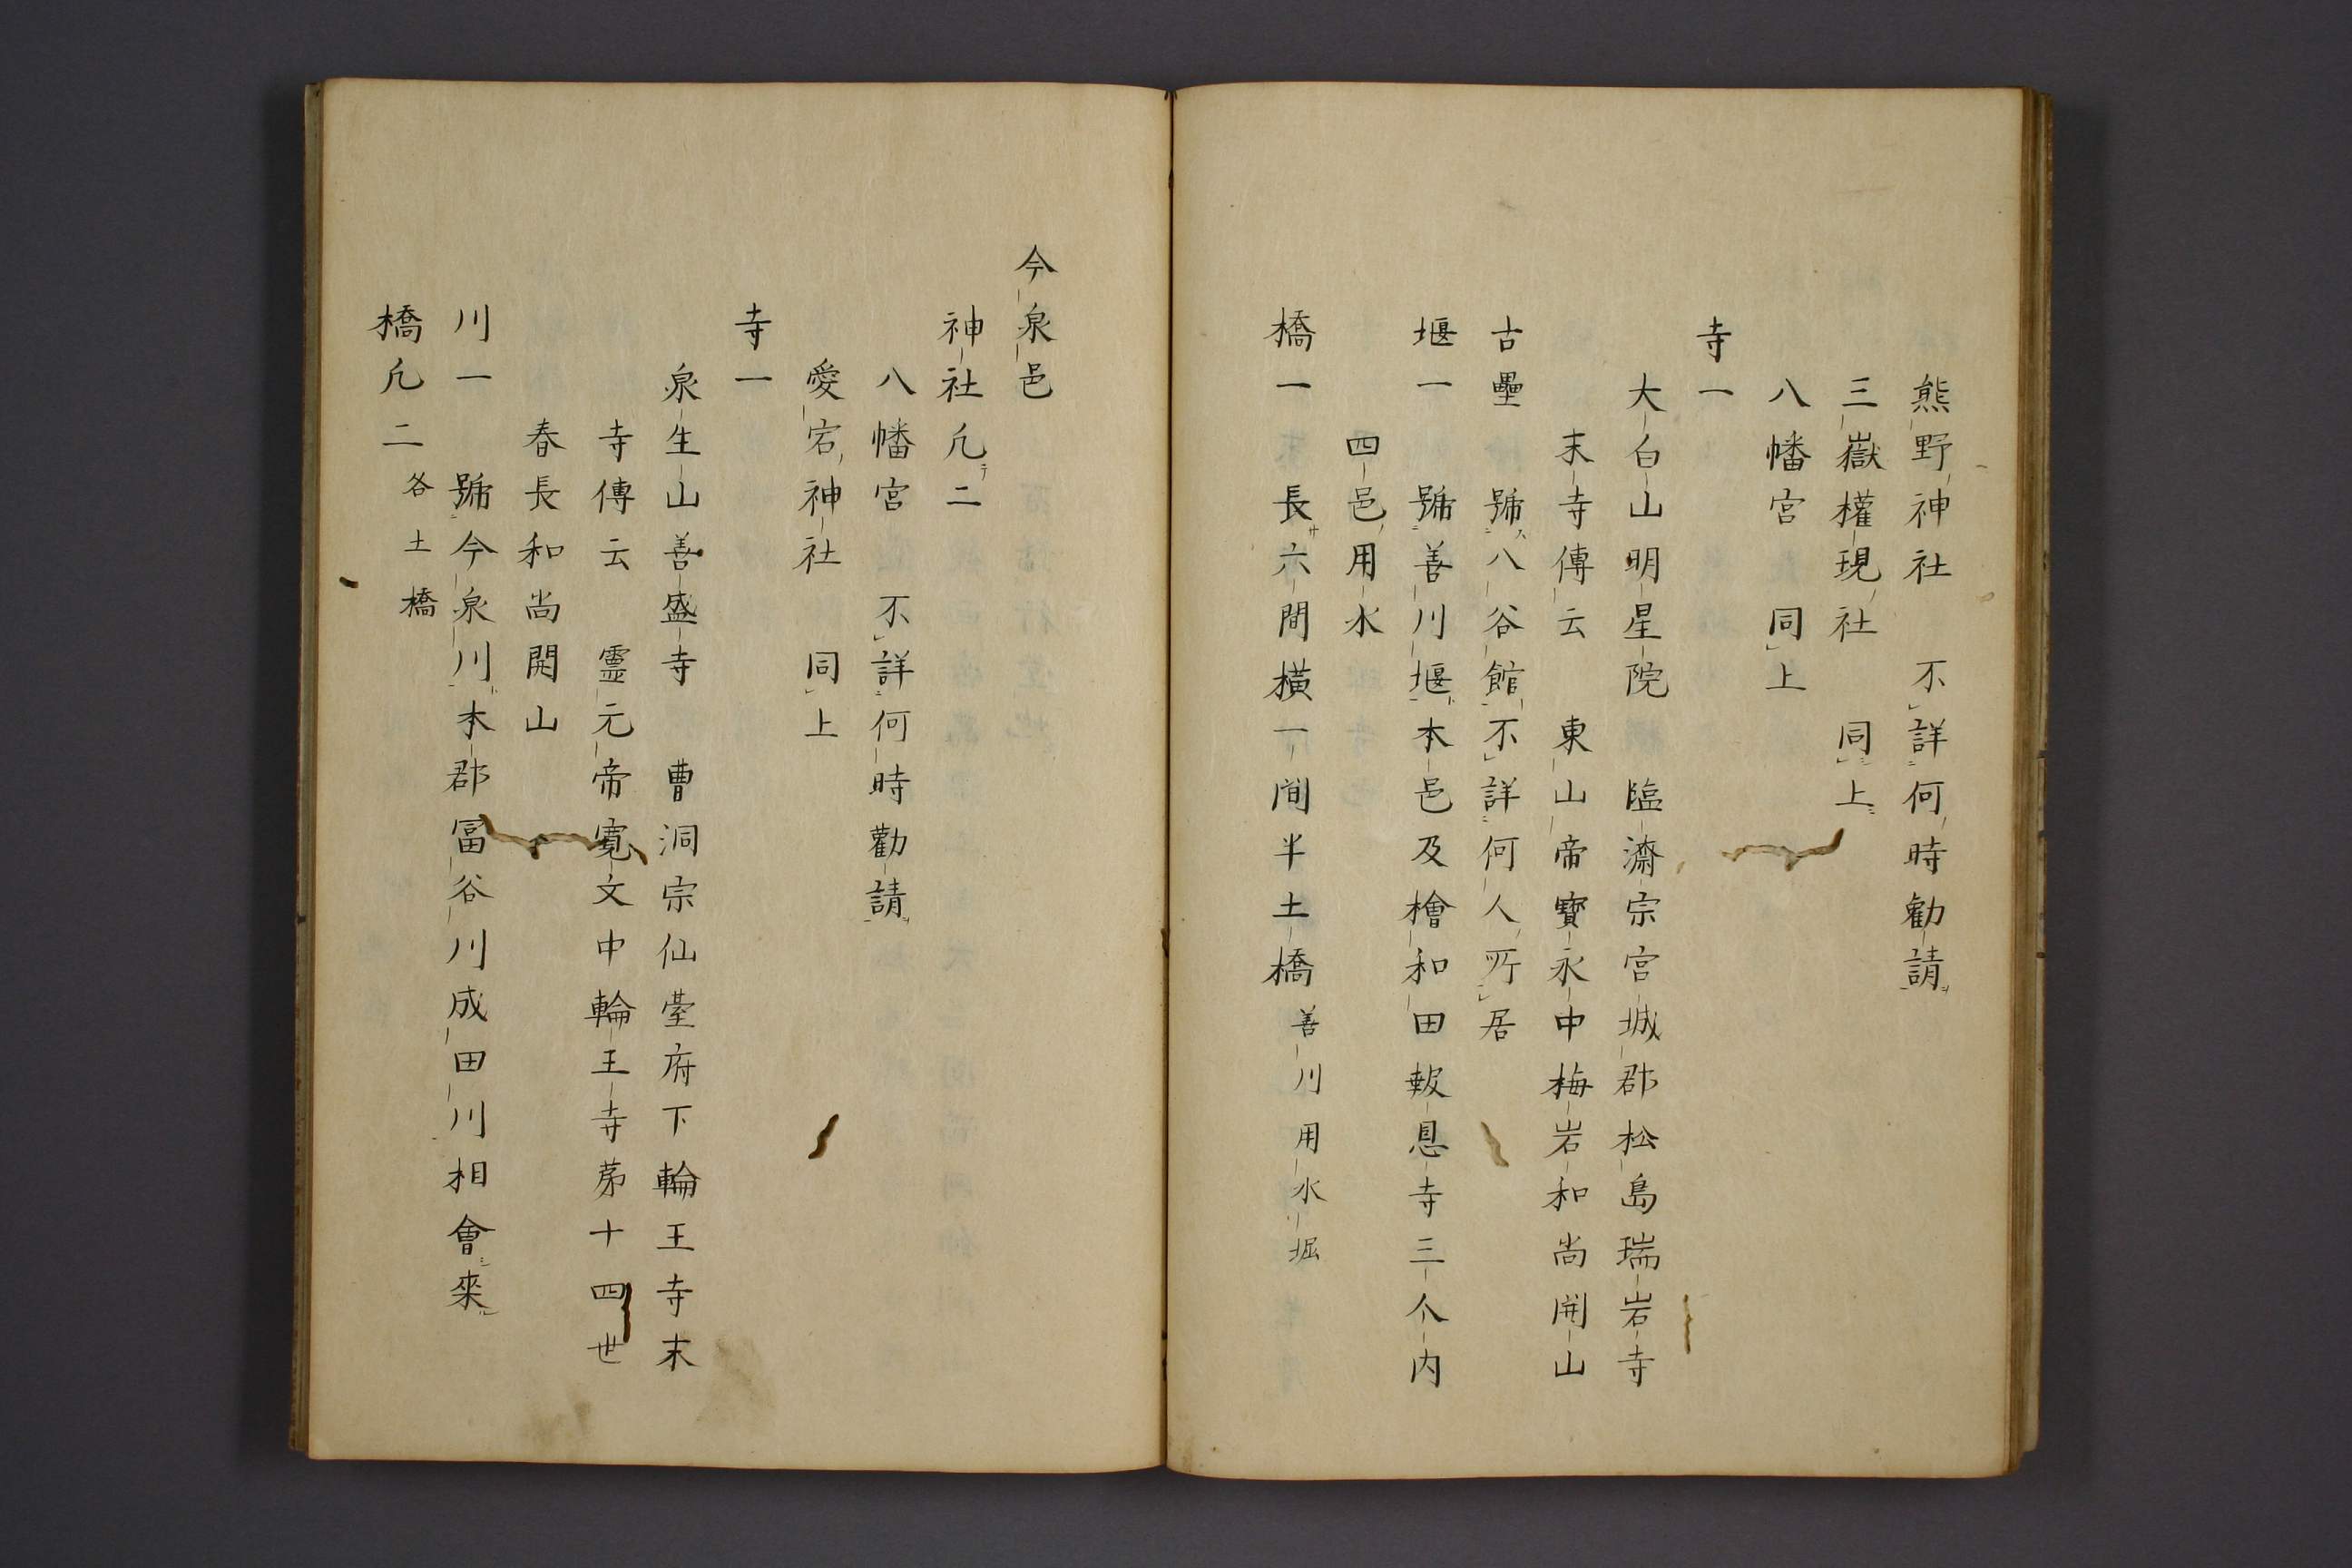 熊野神社 不詳何時勧請
三嶽權現社 同上
八幡宮 同上
寺一
大白山明星院 臨濟宗宮城郡松島瑞岩寺
末寺傳云 東山帝寳永中梅岩和尚開山
古壘 號八谷館不詳何人所居
堰一 號善川堰本邑及檜和田報恩寺三个内
四邑用水
橋一 長六間横一間半土橋善川用水堀
今泉邑
神社凢二
八幡宮 不詳何時勸請
愛宕神社 同上
寺一
泉生山善盛寺 曹洞宗仙臺府下輪王寺末
寺傳云 靈元帝寛文中輪王寺苐十四世
春長和尚開山
川一 號今泉川本郡冨谷川成田川相會來
橋凢二各土橋